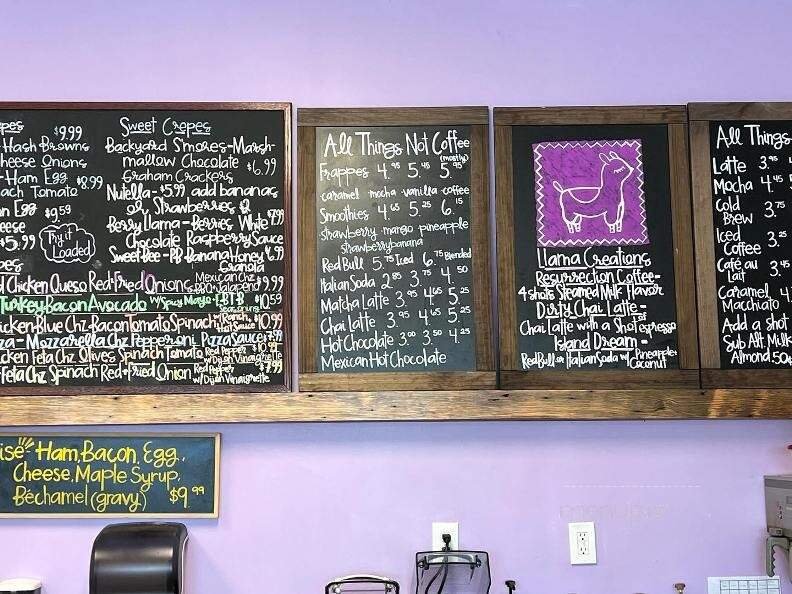 $9.99
Hash Browns
Cheese Onions
Ham Egg $8.99
Tomato
Egg $9.59
Cheese
$5.99
Try it
Loaded
Sweet Crepes
Backyard S'mores-Marsh-
mallow Chocolate
Graham Crackers $6.99
Nutella-$5.99 add bananas
or Strawberries
Berry Llama-Berries White
Chocolate Raspberry Sauce
Sweet Bee-PB Banana Honey
Granola
Chicken Queso Red+Fried Onions Mexican Chz $9.99
Turkey Bacon Avocado w/ Spicy Mayo + $10.59
Chicken Blue Chz-Bacon Tomato Spinach $10.99
Mozzarella Chz Pepperoni Pizza Sauce
Feta Chz Olives Spinach Tomato Red Pepper
w/Dijon Vinaigrette
Feta Chz Spinach Red+Fried Onion Red Pepper
w/Dijon Vinaigrette
Ham, Bacon, Egg,
Cheese, Maple Syrup,
Béchamel (gravy) $9.99
All Things Not Coffee
(mostly)
Frappes 4.95 5.45 5.95
caramel mocha vanilla coffee
Smoothies 4.65 5.25 6.15
strawberry mango pineapple
strawberry banana
Red Bull 5.75 Iced 6.75 Blended
Italian Soda 2.85 3.75 4.50
Matcha Latte 3.95 4.65 5.25
Chai Latte 3.95 4.65 5.25
Hot Chocolate 3.00 3.50 4.25
Mexican Hot Chocolate
Llama Creations
Resurrection Coffee-
4 shots Steamed Milk Flavor
Dirty Chai Latte-
Chai Latte with a Shot espresso
Island Dream-
Red Bull or Italian Soda w/ Pineapple+
Coconut
All Things
Latte 3.95
Mocha 4.45
Cold
Brew 3.75
Iced
Coffee 3.25
Café au
Lait 3.45
Caramel
Macchiato
Add a shot
Sub Alt. Milk
Almond 50¢